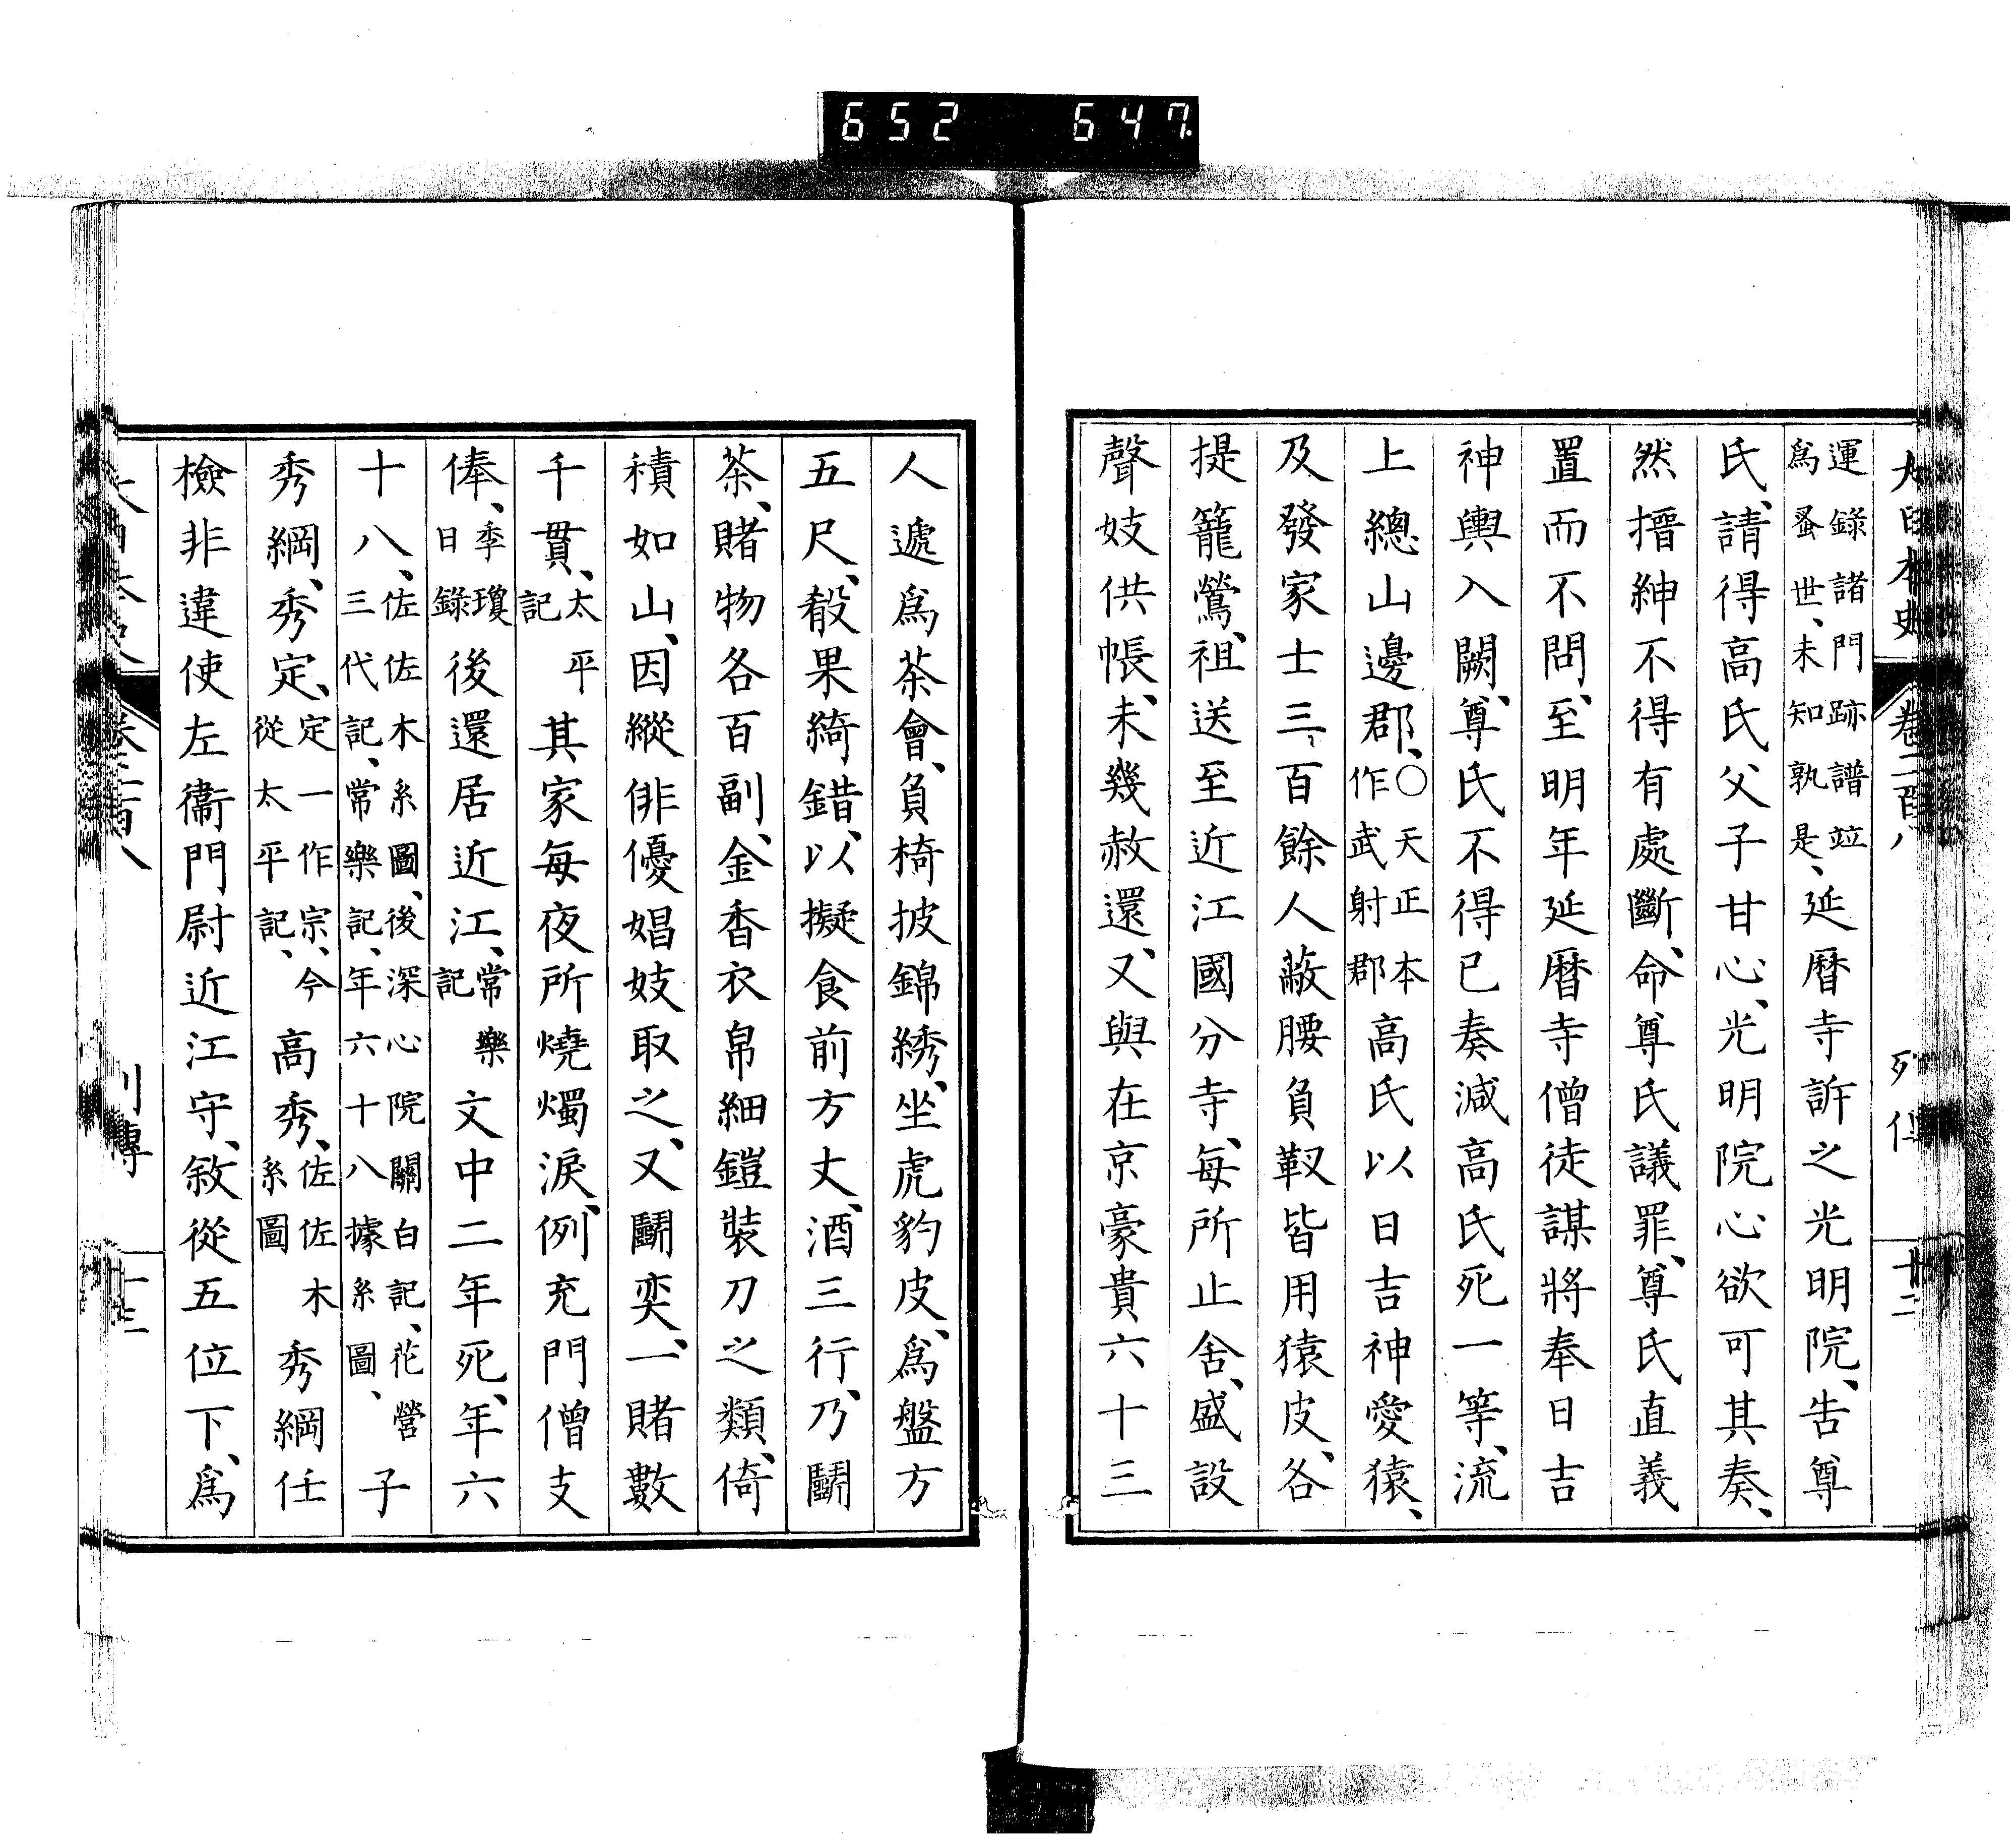 652 647
運錄諸門跡譜竝
爲蚤世、未知孰是、延曆寺訴之光明院、告尊
氏、請得高氏父子甘心、光明院心欲可其奏、
然搢紳不得有處斷、命尊氏議罪、尊氏直義
置而不問、至明年延曆寺僧徒謀將奉日吉
神輿入闕、尊氏不得已奏減高氏死一等、流
上總山邊郡、〇天正本作武射郡高氏以日吉神愛猿、
及發家士三百餘人蔽腰負靫皆用猿皮、各
提籠鶯、祖送至近江國分寺、每所止舍、盛設
聲妓供帳、未幾赦還、又與在京豪貴六十三
人遞爲茶會、負椅披錦綉、坐虎豹皮、爲盤方
五尺、殽果綺錯、以擬食前方丈、酒三行、乃鬭
茶、賭物各百副、金香衣帛細鎧裝刀之類、倚
積如山、因縱俳優娼妓取之、又鬭奕、一賭數
千貫、太平記其家每夜所燒燭淚、例充門僧支
俸、季瓊日錄後還居近江、常樂記文中二年死、年六
十八、佐佐木系圖、後深心院關白記、花營三代記、常樂記、年六十八據系圖、子
秀綱、秀定、定一作宗、今從太平記、高秀、佐佐木系圖秀綱任
檢非違使左衞門尉近江守、敘從五位下、爲